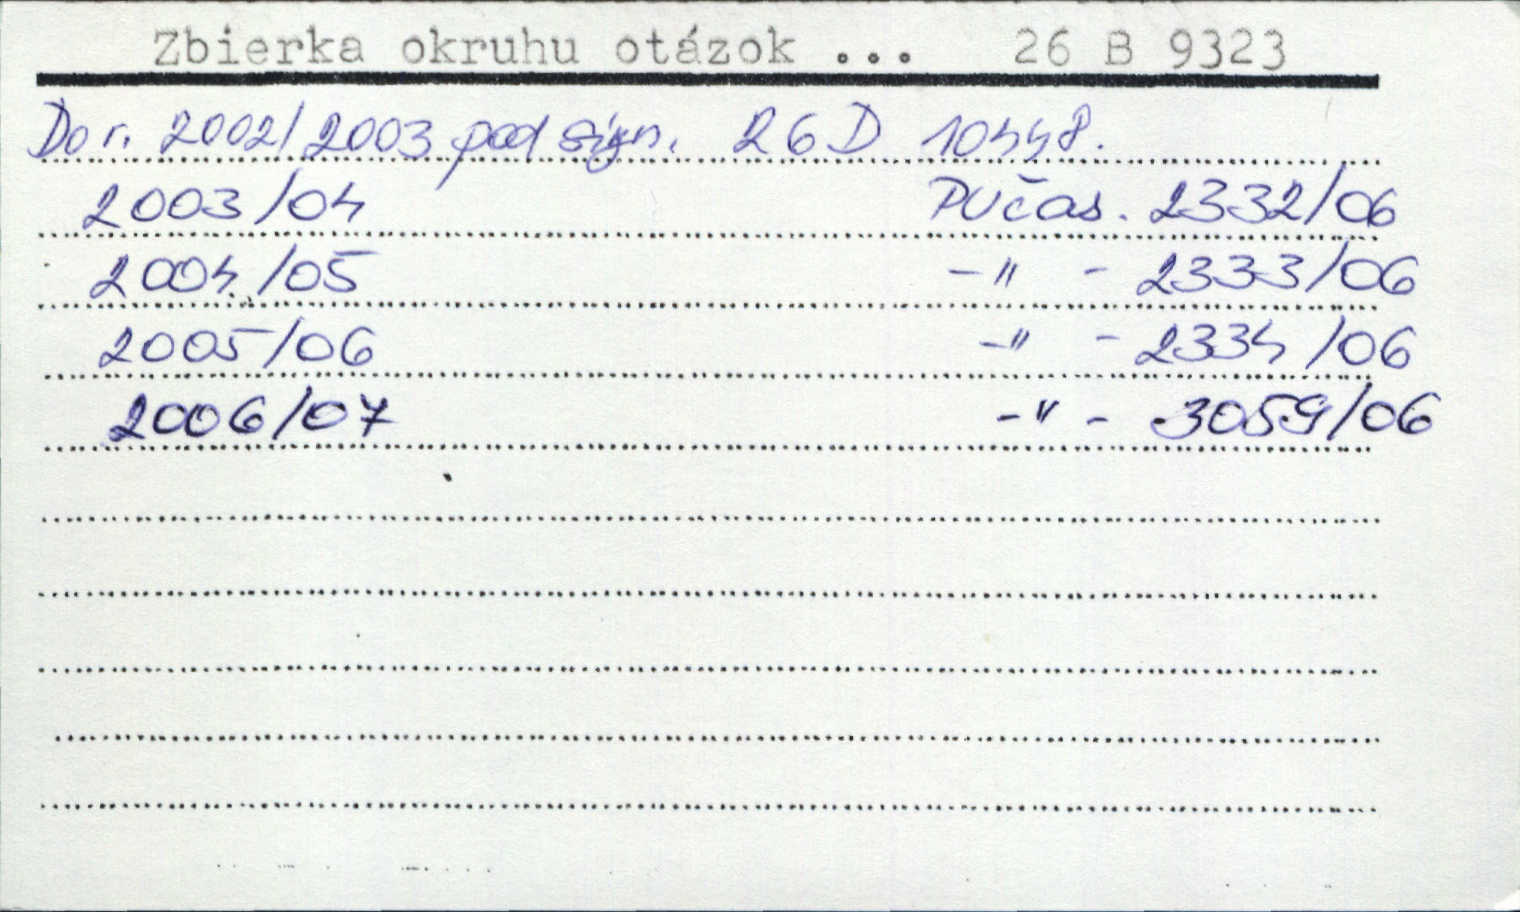 Zbierka okruhu otázok ... 26 B 9323
Do r. 2002/2003 pod sign. 26 D 10448.
2003/04 PVčas. 2332/06
2004/05 -"- 2333/06
2005/06 -"- 2334/06
2006/07 -"- 3059/06